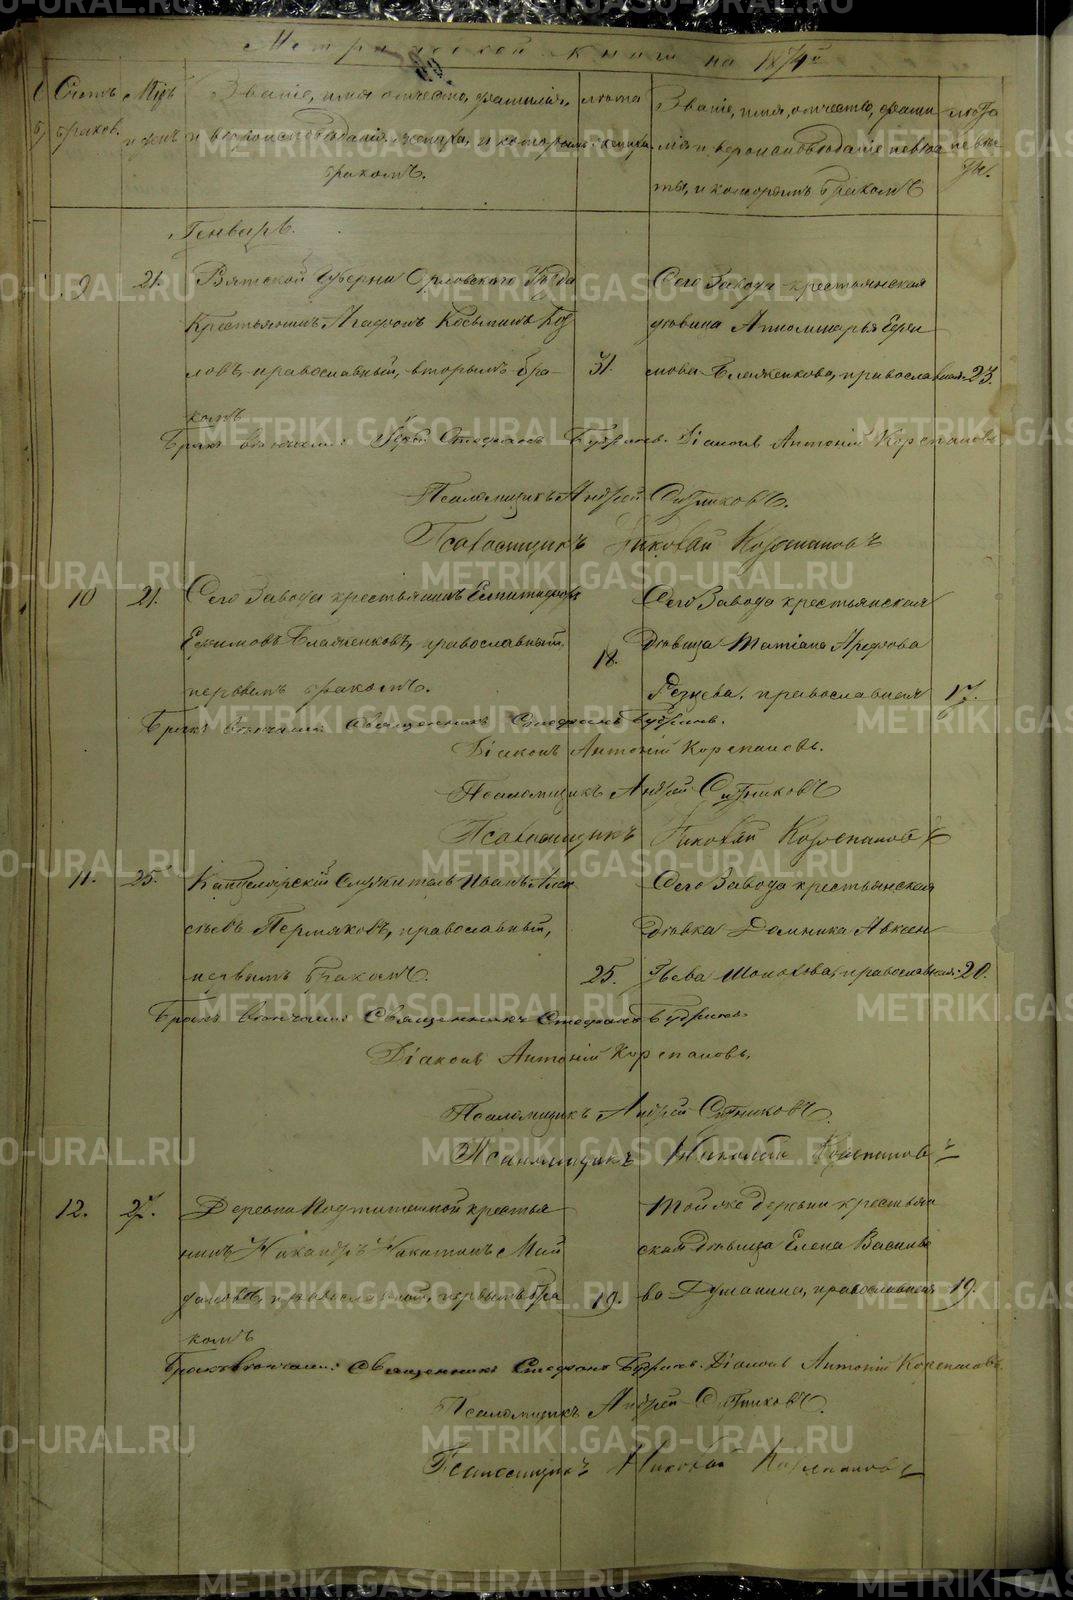 Метрической книги на 1874й
Счетъ браков.
Мцъ и день
Званіе, имя отчество, фамилія,
и вероисповѣданіе жениха, и которымъ
бракомъ.
лѣта жениха
Званіе, имя, отчество, фами
лія и вероисповѣданіе невѣс
ты, и которымъ бракомъ
лѣта невѣс ты.
Генварь.
9 21. Вятской Губерни Орловского Уѣзда
Крестьянинъ Агафонъ Косьминъ Коз
ловъ православный, вторымъ бра- 31.
комъ
Сего Завода крестьянская
дѣвица Апполинарья Ефи
мова Блаженкова, православная 23.
Бракъ вѣнчали: Стефанъ Діаконъ Антоній Корепановъ
Псаломщикъ Андрей Ситниковъ.
Псаломщикъ Николай Корепановъ
10 21. Сего Завода крестьянинъ
Ефимовъ Блаженковъ, православный, 18.
первымъ бракомъ.
Сего Завода крестьянская
Дѣвица Татіана Арефьева
православная 17.
Бракъ вѣнчали: Священникъ Стефанъ
Діаконъ Антоній Корепановъ.
Псаломщикъ Андрей Ситниковъ
Псаломщикъ Николай Корепановъ
11. 25. Канцелярскій Служитель Иванъ Алек
сѣевъ Пермяковъ, православный,
первымъ бракомъ. 25.
Сего Завода крестьянская
Дѣвка Домника Авксен
тьева православная 20.
Бракъ вѣнчали: Священникъ Стефанъ
Діаконъ Антоній Корепановъ.
Псаломщикъ Андрей Ситниковъ.
Псаломщикъ Николай Корепановъ
12. 27. Деревни крестья
нинъ Никандръ
православный, первымъ бра 19.
комъ
Той же деревни крестьян
ская дѣвица Елена Василье
ва православная 19.
Бракъ вѣнчали: Священникъ Стефанъ Діаконъ Антоній Корепановъ.
Псаломщикъ Андрей Ситниковъ.
Псаломщикъ Николай Корепановъ
METRIKI.GASO-URAL.RU